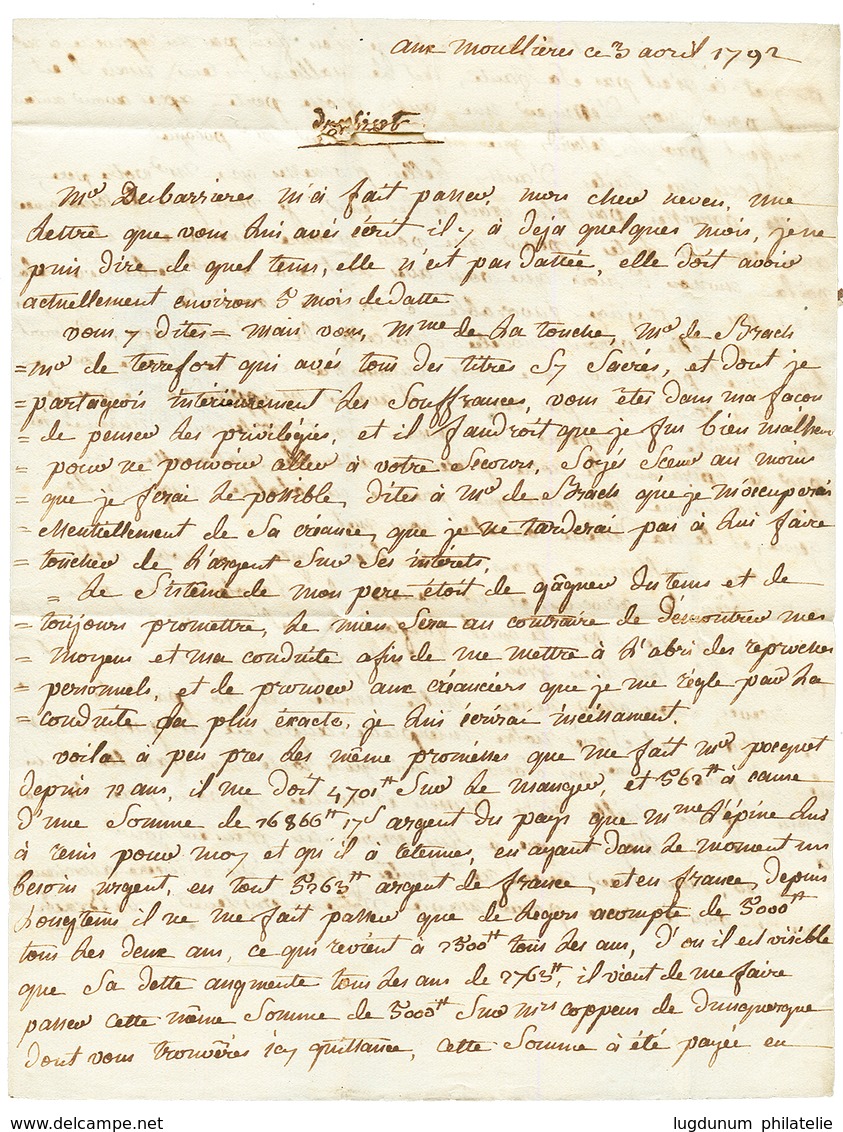 aux moullieres ce 3 avril 1792
duplicat
Mr Desbarrieres m'a fait passer, mon cher neveu, une
Lettre que vous lui avés écrit il y à deja quelques mois, je ne
puis dire de quel tems, elle n'est pas dattée, elle doit avoir
actuellement environ 5 mois de datte
vous y dites = mais vous, Mme de La touche, Mr de Brach
= mr de terrefort qui avés tous des titres sy sacrés, et dont je
= partageois intérieurement les souffrances, vous êtes dans ma façon
= de penser les privilégiés, et il faudroit que je fus bien malheur
= pour ne pouvoir aller à votre secours, soyés sceur au moins
= que je ferai le possible, dites à Mr de Brach que je m'occuperai
= essentiellement de sa créance, que je ne tarderai pas à lui faire
= toucher de l'argent sur ses intérets,
= Le sistême de mon pere étoit de gâgner du tems et de
= toujours promettre, le mien sera au contraire de démontrer mes
= moyens et ma conduite afin de me mettre à l'abri des reproches
= personnels, et de prouver aux créanciers que je me régle par la
= conduite la plus éxacte, je lui écrirai incéssament.
voila à peu pres les même promésses que me fait mr pocquet
depuis 12 ans, il me doit 4701tt sur le manger, et 562tt à cause
d'une somme de 16866tt 17s argent du pays que mme L'épine lui
à remis pour moy et qu'il à retenues, en ayant dans le moment un
besoin urgent, en tout 5263tt argent de france, et en france, depuis
Longtems il ne me fait passer que de legers acompte de 5000tt
tous les deux ans, ce qui revient à 2500tt tous les ans, d'ou il est visible
que sa dette augmente tous les ans de 2763tt, il vient de me faire
passer cette même somme de 5000tt sur mrs coppens de dunquerque
dont vous trouvérés icy quittance, cette somme à été payée en
www.delcampe.net
lugdunum philatelie